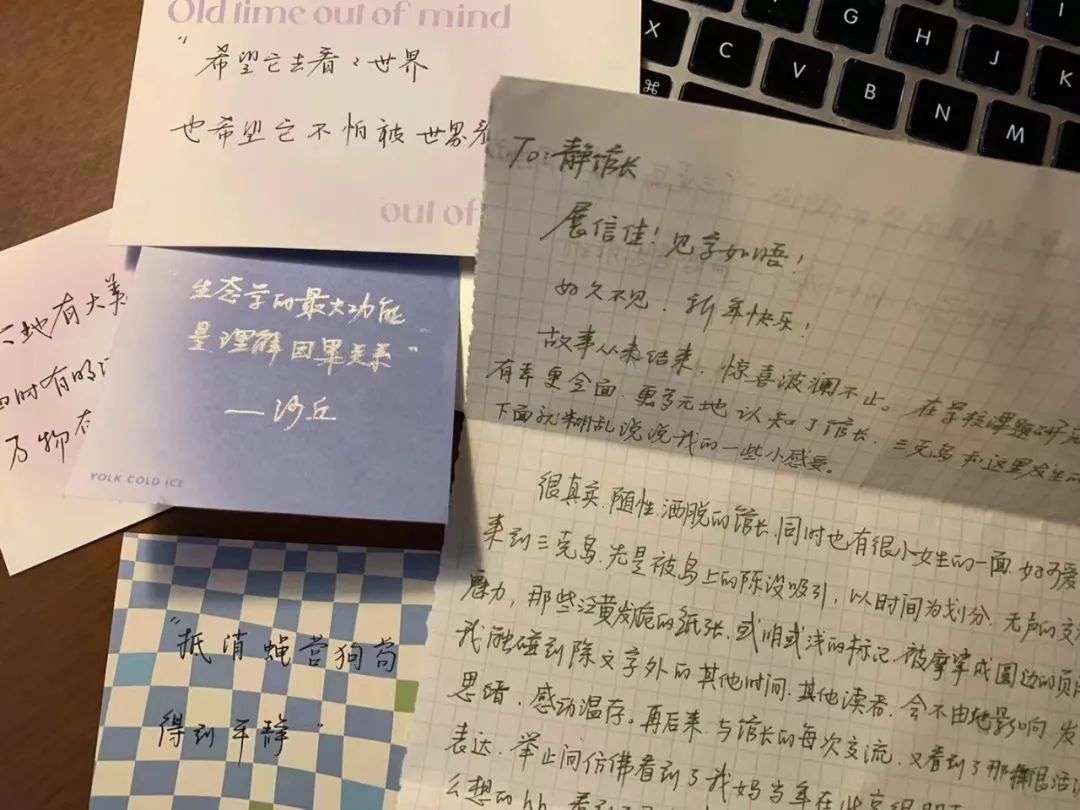 Old time out of mind
"希望它去看看世界
也希望它不怕被世界看
out of
天地有大美
四时有明
万物有
"生态学的最大功能
是理解因果关系"
—沙丘
YOLK COLD ICE
"抵消蝇营狗苟
得到平静"
To:静馆长
展信佳!见字如晤!
好久不见,新年快乐!
故事从未结束,惊喜波澜不止。在学校课题研究
有幸更全面、更多元地认知了馆长、三克鸟和这里发生的
下面就糊乱说说我的一些小感受。
很真实、随性、洒脱的馆长,同时也有很小女生的一面,如可爱
来到三克鸟,先是被鸟上的陈设吸引,以时间为划分,无声的交
魔力,那些泛黄发脆的纸张,或明或浅的标记,被摩挲成圆边的页
我触碰到除文字外的其他时间,其他读者,会不由地影响发
思绪,感动温存。再后来,与馆长的每次交流,又看到了那种很活
表达,举止间仿佛看到了我妈当年在
么想的hh
X C V B N M G H J K ⌘